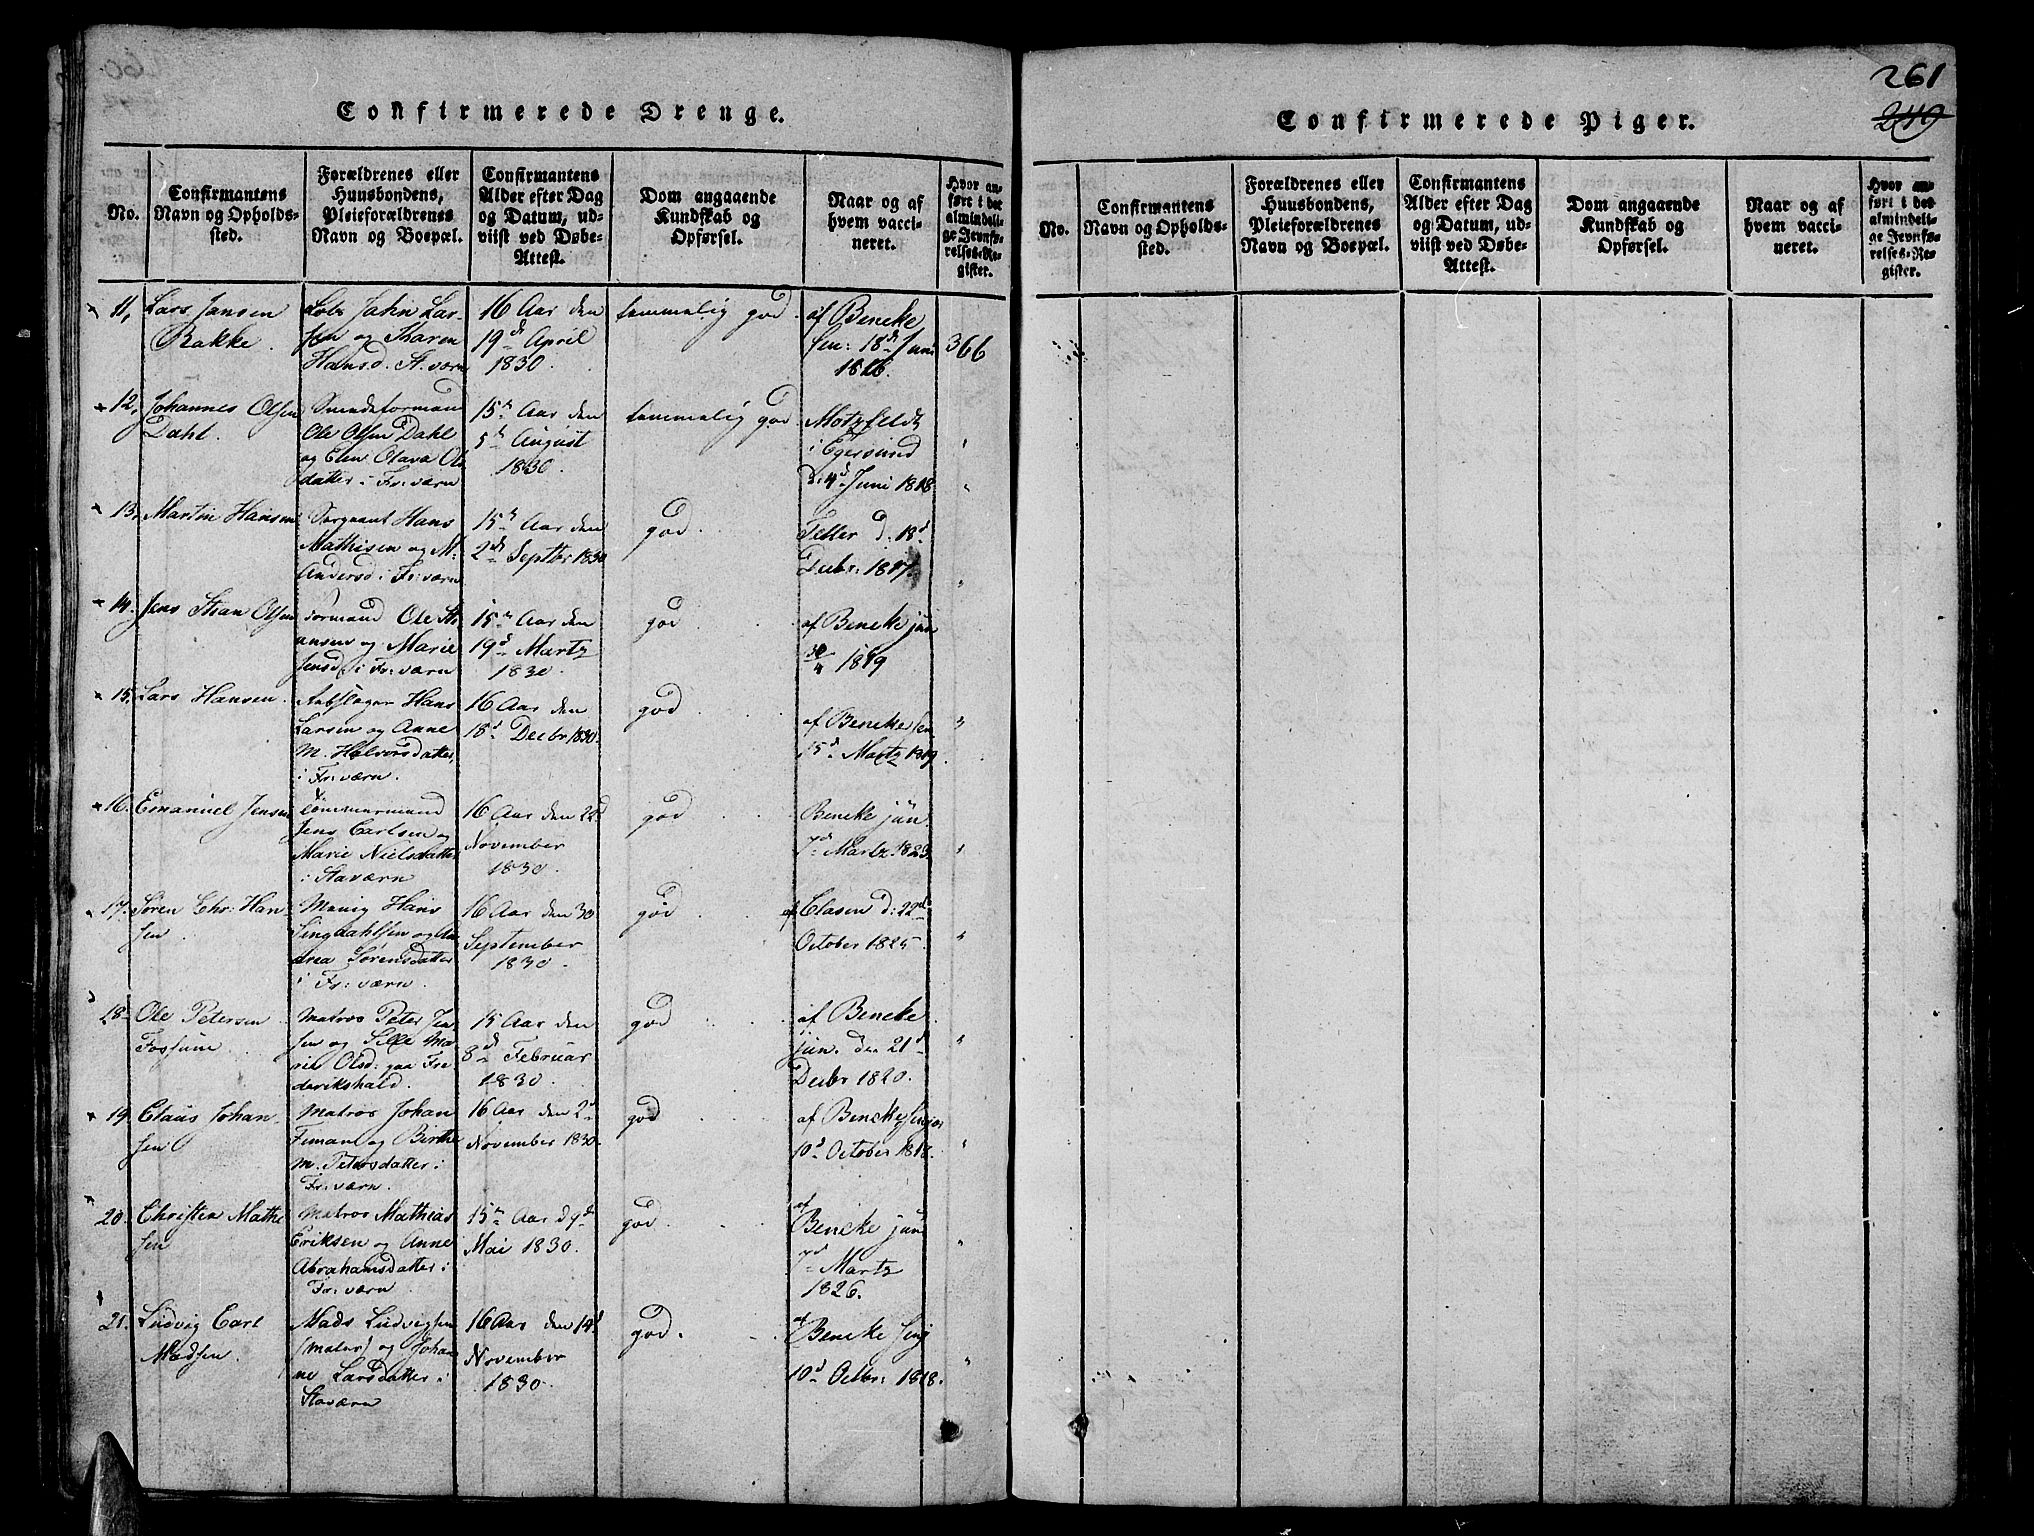 261
249
Confirmerede Drenge.
No.
Confirmantens
Navn og Opholds-
sted.
Forældrenes eller
Huusbondens,
Pleieforældrenes
Navn og Boepæl.
Confirmantens
Alder efter Dag
og Datum, ud-
viist ved Døbe-
Attest.
Dom angaaende
Kundskab og
Opførsel.
Naar og af
hvem vacci-
neret.
Hvor an-
ført i det
almindeli-
ge Jevnfø-
relses-Re-
gister.
11,
Lars Jansen
Bakke.
Lods Jahn Lar-
sen og Maren
Hansd. St.værn
16 Aar den
19de April
1830.
temmelig god.
af Beneke
sen: 18de Juni
1816.
366
12,
Johannes Olsen
Dahl.
Smedeformand
Ole Olsen Dahl
og Elen Olava Ols
datter i Fr:værn
15 Aar den
5te August
1830.
temmelig god
Motzfeldt
i Egersund
d: 4de Juni 1818.
13,
Martin Hansen
Sergeant Hans
Mathisen og M:
Andersd i Fr:værn
15 Aar den
2de Septbr 1830
god.
Teller d: 18d
Decbr: 1817.
14.
Jens Olsen
Formand Ole
ansen og Marie
Jensd. i Fr:værn
15 Aar den
19d Martz
1830.
god
af Beneke jun
30/4 1819
15.
Lars Hansen.
Hans
Larsen og Anne
M. Halvorsdatter
i Fr:værn.
16 Aar den
18d Decbr 1830.
god
af Beneke sen.
15d Martz 1819.
16.
Emanuel Jensen
Tømmermand
Jens Carlsen og
Marie Nielsdatter
i Staværn
16 Aar den 22d
November
1830.
god
Beneke jun.
7d Martz 1823.
17.
Søren Chr: Han-
sen.
Hans
Lingdahlsen og An
drea Sørensdatter
i Fr:værn.
16 Aar den 30
September
1830.
god
af Clasen d: 22de
October 1825.
18.
Ole Petersen
Fossum
Matros Peter Jen
sen og Silke Ma
rie Olsd: paa Fre
derikshald.
15 Aar den
8de Februar
1830.
god
af Beneke
jun. den 21d
Decbr 1820.
19.
Claus Johan-
sen
Matros Johan
Timan og Birthe
M. Petersdatter i
Fr:værn.
16 Aar den 2d
November 1830.
god
af Beneke
10d October 1818.
20.
Christen Mathi
sen
Matros Mathias
Eriksen og Anne
Abrahamsdatter i
Fr:værn
15 Aar d 9de
Mai 1830.
god.
af
Beneke jun
7d Martz
1826.
21.
Ludvig Carl
Madsen.
Mads Ludvigsen
(maler) og Johan
ne Larsdatter i
Staværn
16 Aar den 14d
November
1830.
god.
af
Beneke
10d Octbr: 1818.
Confirmerede Piger.
No.
Confirmantens
Navn og Opholds-
sted.
Forældrenes eller
Huusbondens,
Pleieforældrenes
Navn og Boepæl.
Confirmantens
Alder efter Dag
og Datum, ud-
viist ved Døbe-
Attest.
Dom angaaende
Kundskab og
Opførsel.
Naar og af
hvem vacci-
neret.
Hvor an-
ført i det
almindeli-
ge Jevnfø-
relses-Re-
gister.